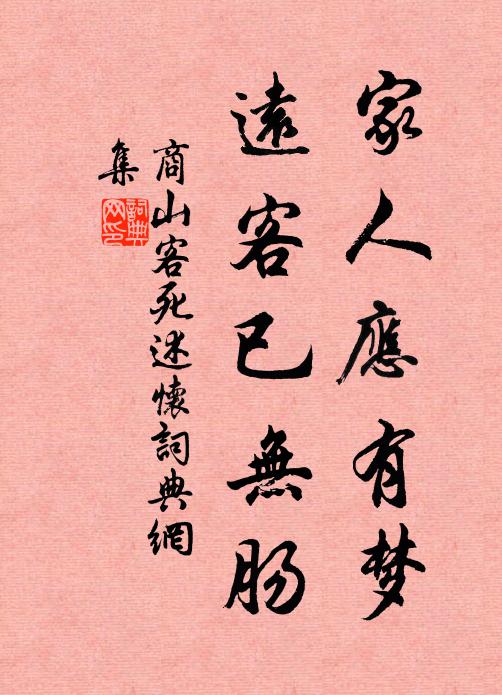 家人應有梦
遠客已無肠
商山客死述懷詞典網
集
詞典
网印